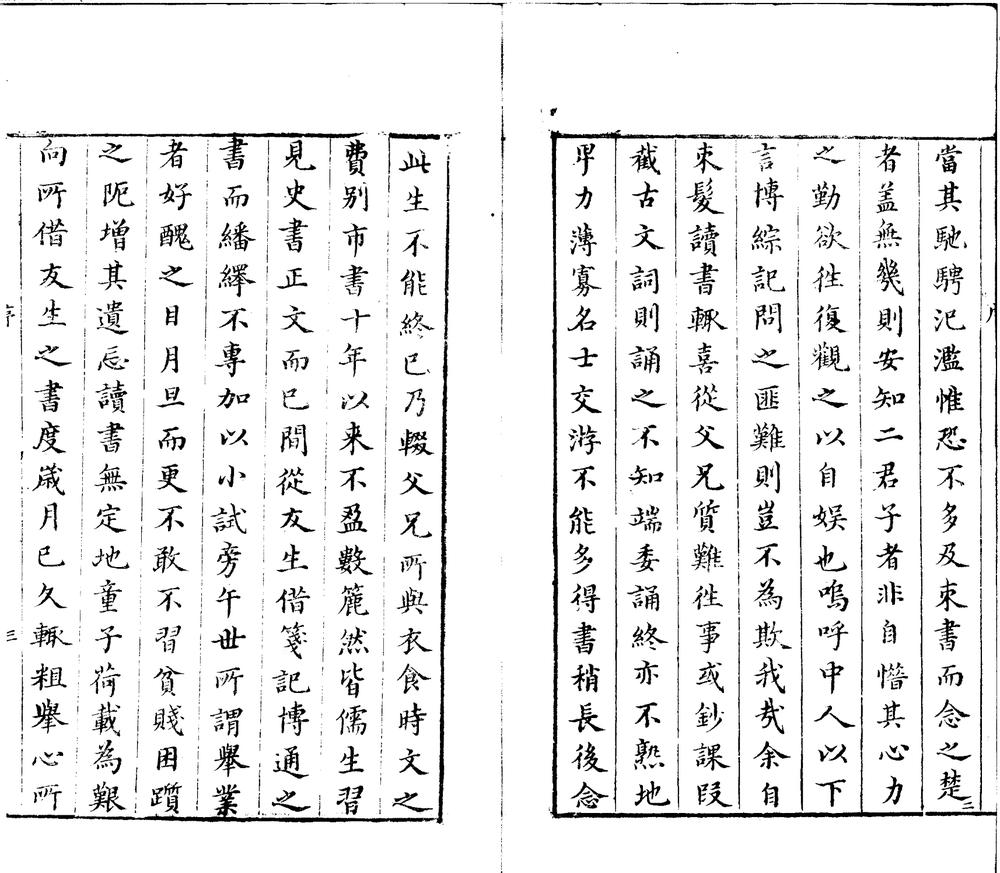 當其馳騁汜濫惟恐不多及束書而念之楚
者盖無幾則安知二君子者非自憯其心力
之勤欲徃復觀之以自娯也嗚呼中人以下
言博綜記問之匪難則豈不為欺我㢤余自
束髮讀書輙喜從父兄質難徃事或鈔課叚
截古文詞則誦之不知端委誦終亦不熟地
畀力薄寡名士交游不能多得書稍長後念
此生不能終已乃輟父兄所與衣食時文之
費别市書十年以来不盈數簏然皆儒生習
見史書正文而已間從友生借箋記博通之
書而繙繹不專加以小試旁午丗所謂舉業
者好醜之目月旦而更不敢不習貧賤困躓
之阨增其遺忘讀書無定地童子荷載為艱
向所借友生之書度歳月已久輙粗舉心所
序
三